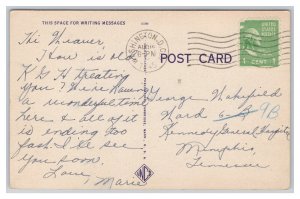 THIS SPACE FOR WRITING MESSAGES
WASHINGTON, D.C.
PM
POST CARD
UNITED STATES
POSTAGE
1 CENT 1
Hi Weaver
How is old
K G H treating
you? I'm Having
a wonderful time
here & all of it
is ending too
fast. I'll be see
you soon.
Love,
Marie
George Wakefield
Ward 9B
Kennedy General Hospital
Memphis,
Tennessee